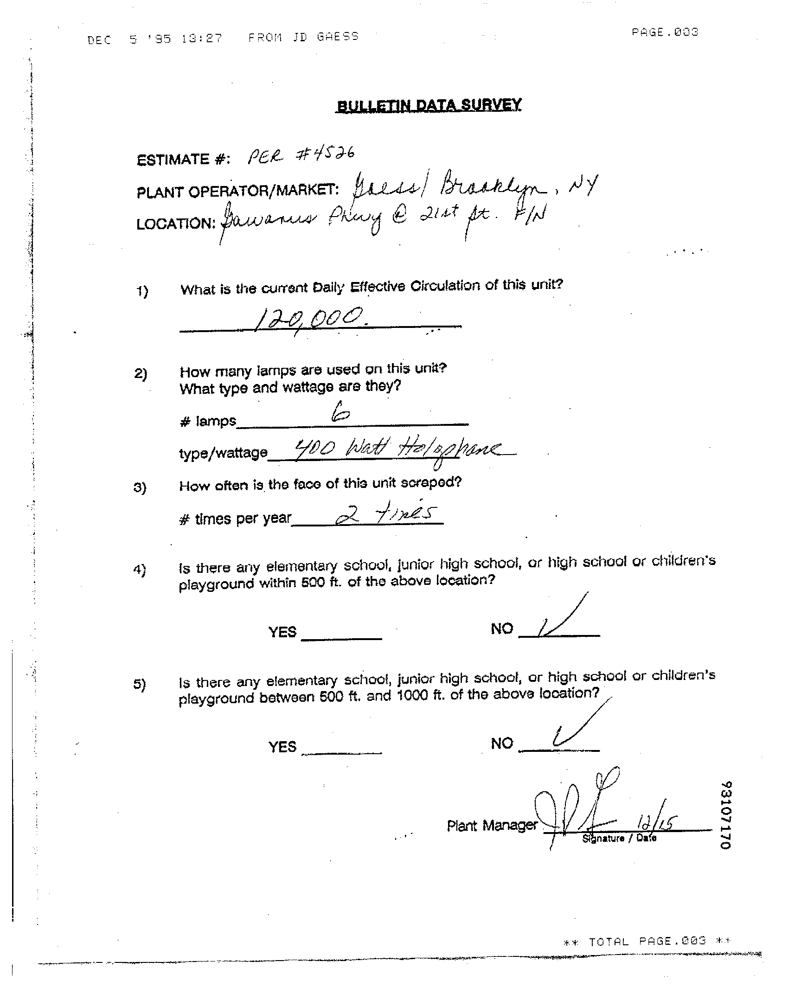 DEC 5 '95 13:27 FROM JD GAESS PAGE.003
BULLETIN DATA SURVEY
ESTIMATE #: PER #4526
PLANT OPERATOR/MARKET: Gaess/ Brooklyn, NY
LOCATION: Gawanus Pkwy @ 21st St. F/N
1) What is the current Daily Effective Circulation of this unit?
120,000.
2) How many lamps are used on this unit?
What type and wattage are they?
# lamps 6
type/wattage 400 Watt Holophane
3) How often is the face of this unit scraped?
# times per year 2 times
4) Is there any elementary school, junior high school, or high school or children's
playground within 500 ft. of the above location?
YES NO ✓
5) Is there any elementary school, junior high school, or high school or children's
playground between 500 ft. and 1000 ft. of the above location?
YES NO ✓
Plant Manager 12/15
Signature / Date
93107170
** TOTAL PAGE.003 **